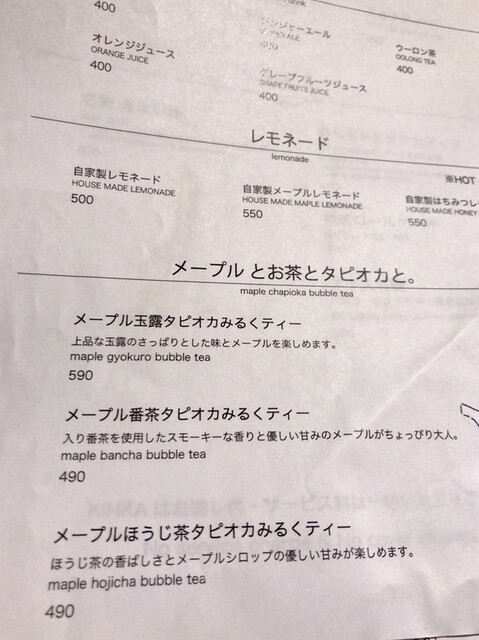 drink
400
オレンジジュース
ORANGE JUICE
400
ジンジャーエール
400
グレープフルーツジュース
GRAPE FRUITS JUICE
400
ウーロン茶
OOLONG TEA
400
レモネード
lemonade
※HOT
自家製レモネード
HOUSE MADE LEMONADE
500
自家製メープルレモネード
HOUSE MADE MAPLE LEMONADE
550
自家製はちみつレ
HOUSE MADE HONEY
550
メープル とお茶とタピオカと。
maple chapioka bubble tea
メープル玉露タピオカみるくティー
上品な玉露のさっぱりとした味とメープルを楽しめます。
maple gyokuro bubble tea
590
メープル番茶タピオカみるくティー
入り番茶を使用したスモーキーな香りと優しい甘みのメープルがちょっぴり大人。
maple bancha bubble tea
490
メープルほうじ茶タピオカみるくティー
ほうじ茶の香ばしさとメープルシロップの優しい甘みが楽しめます。
maple hojicha bubble tea
490